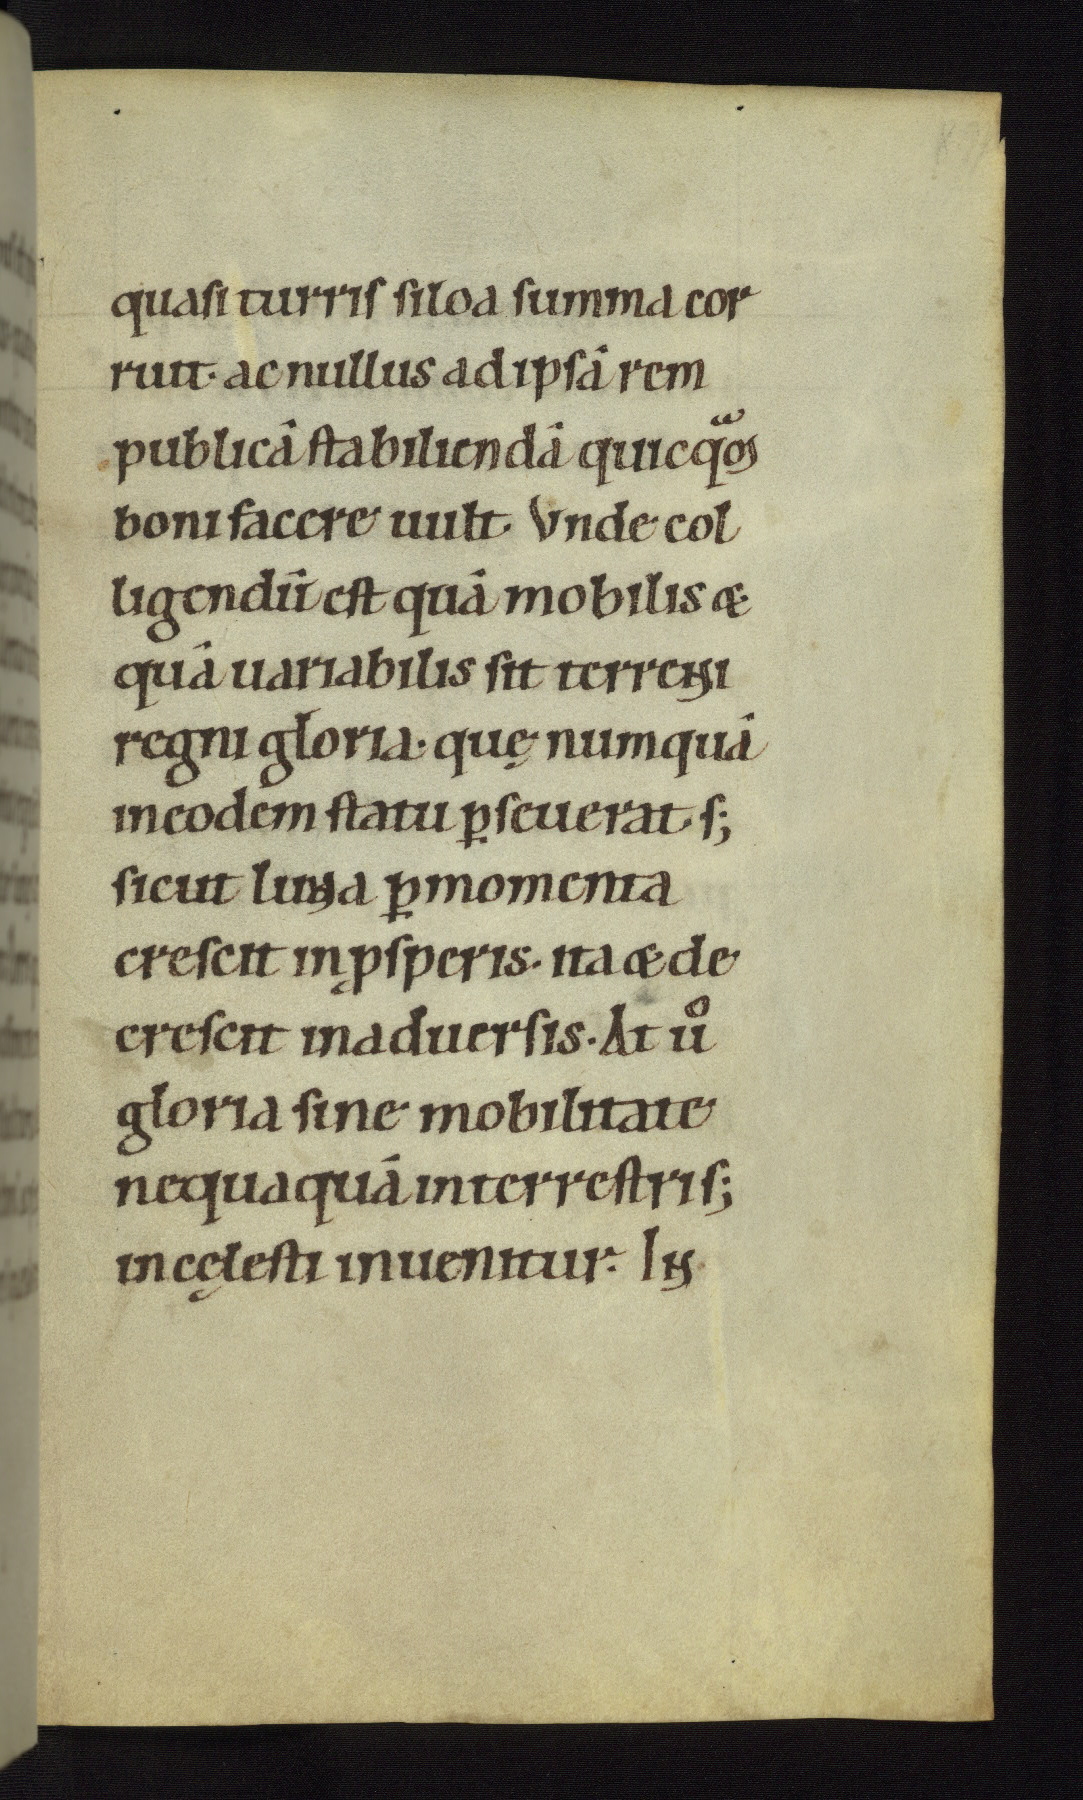 quasi turris siloa summa cor
ruit· ac nullus ad ipsā rem
publicā stabiliendā quicqᷓꝫ
boni facere uult· Vnde col
ligendū est quā mobilis &
quā uariabilis sit terreni
regni gloria· quę numquā
in eodem statu ꝑseuerat s;
sicut luna ꝑ momenta
crescit in ꝓsperis· ita & de
crescit in aduersis· At uͦ
gloria sine mobilitate
nequaquā in terrestri s;
in cęlesti inuenitur· In